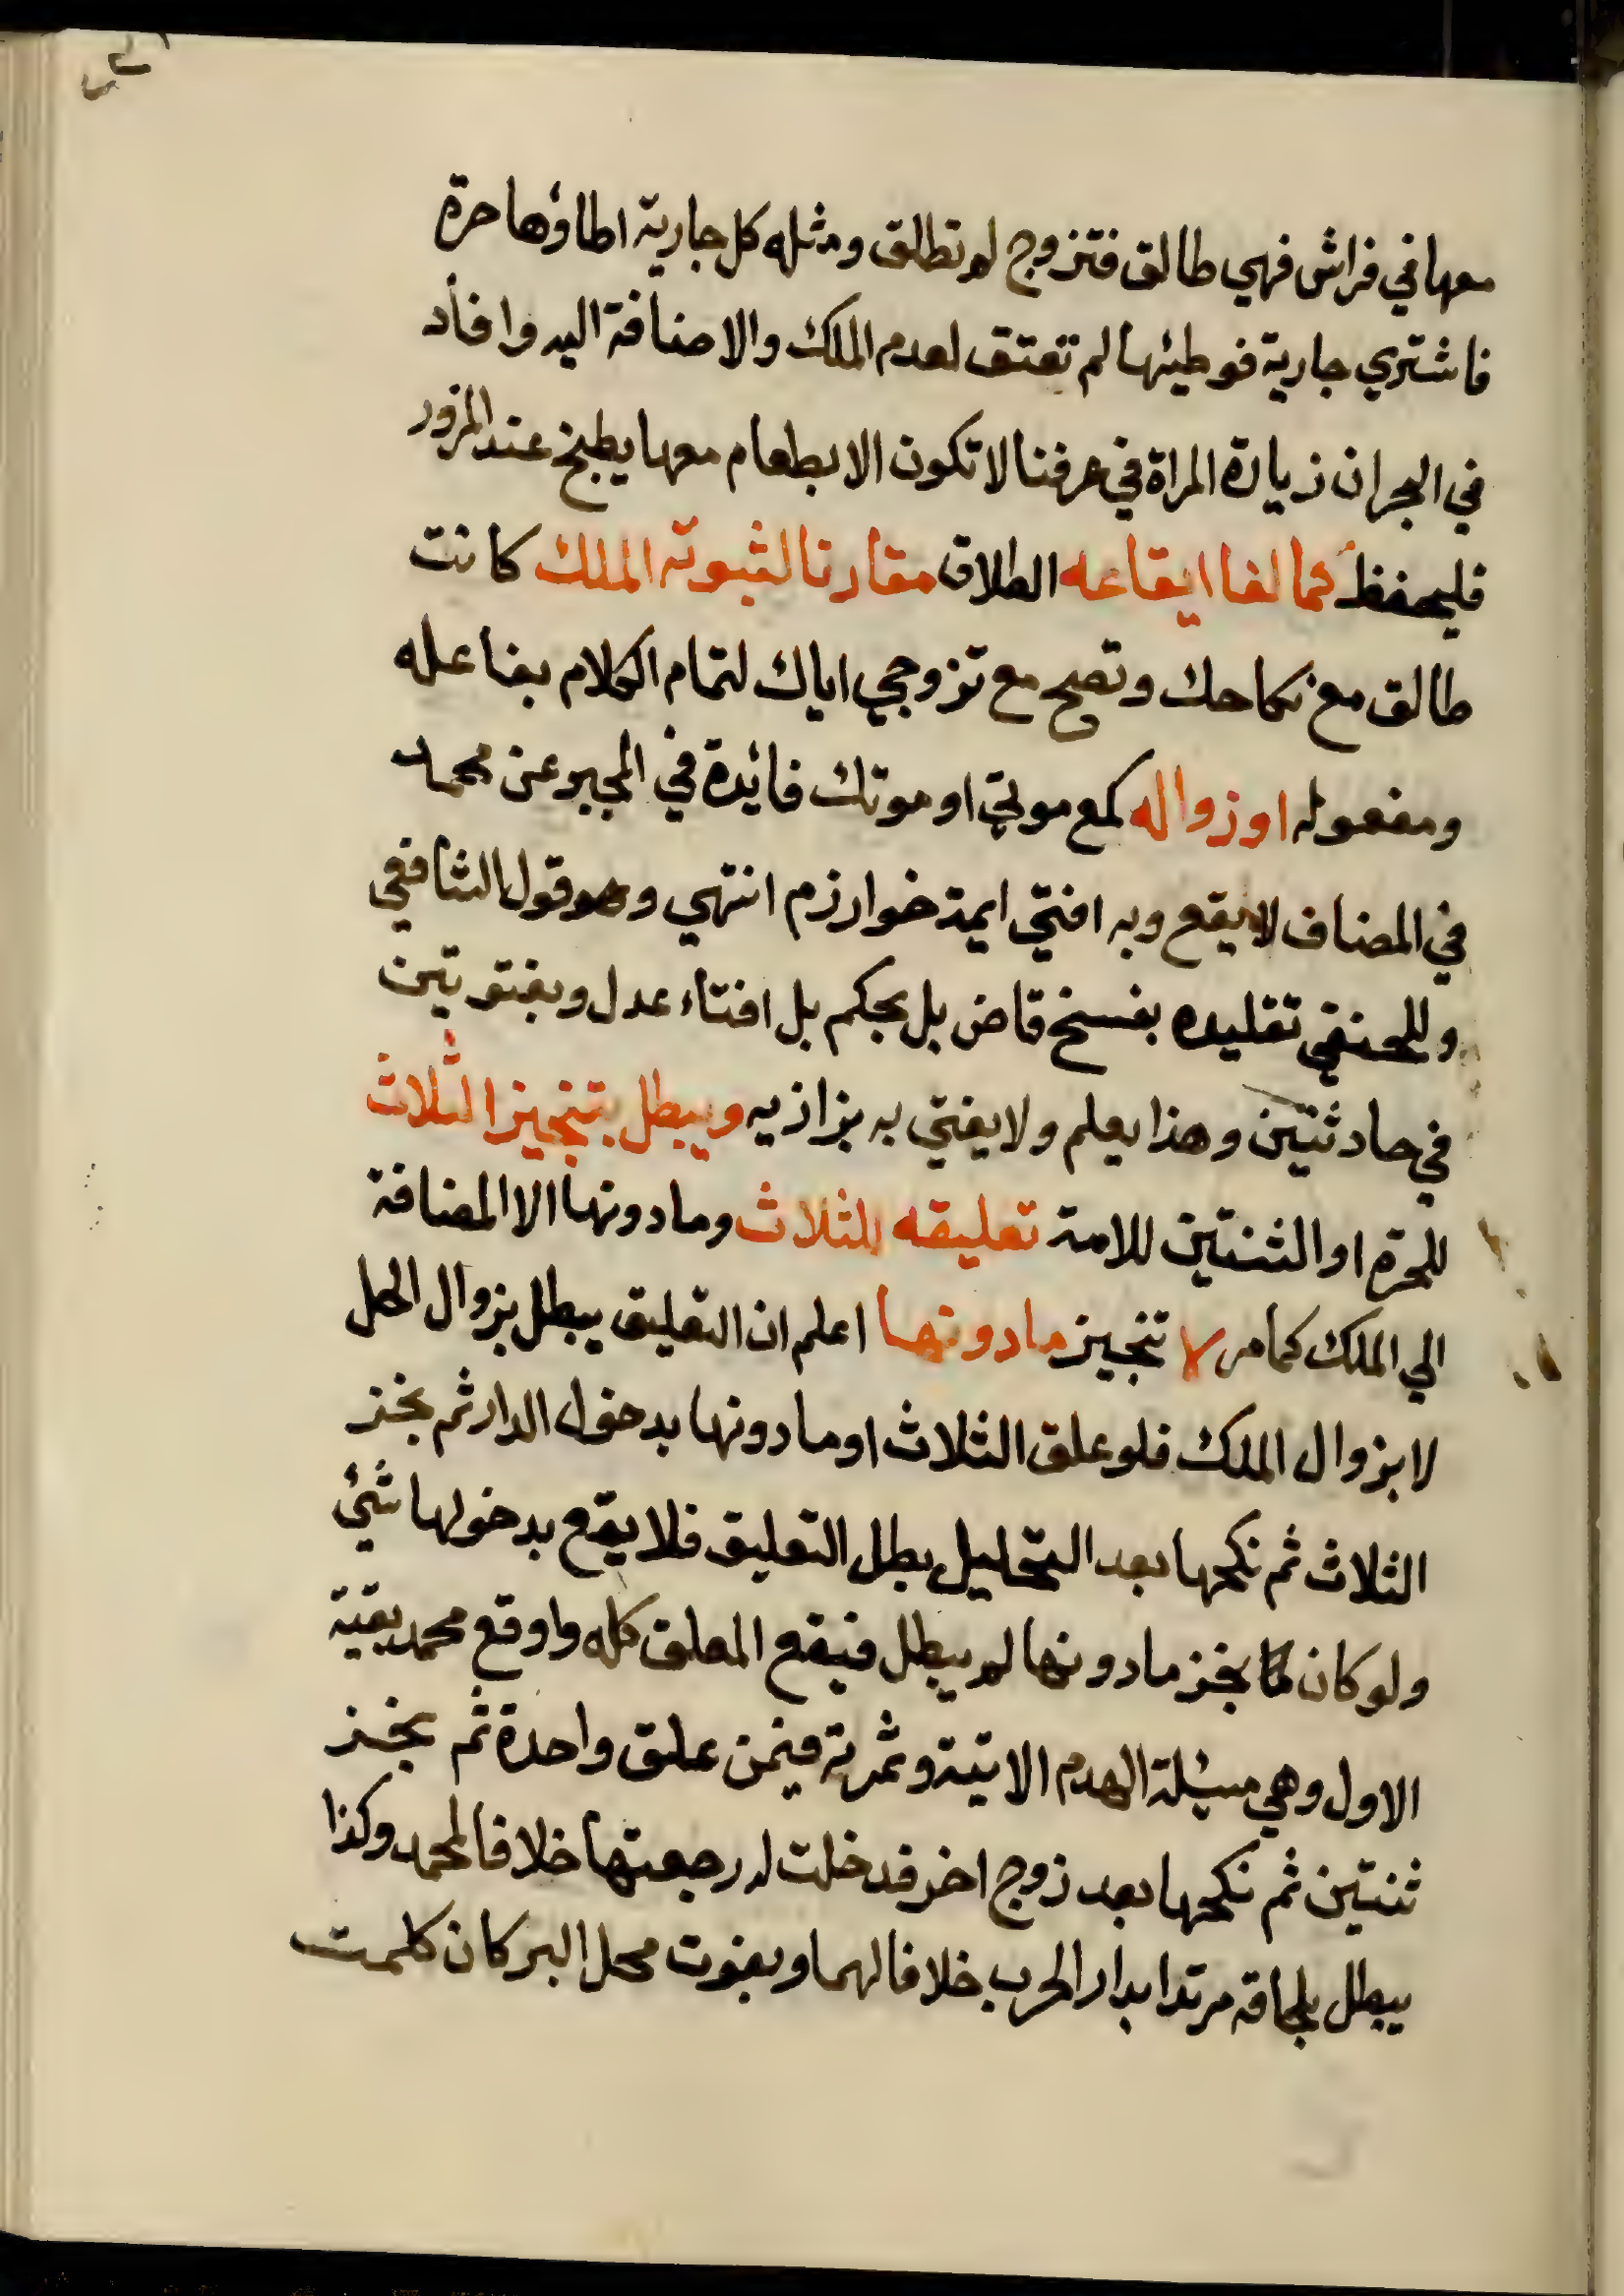 معها في فراش فهي طالق فتزوج لم تطلق ومثله كل جارية اطاؤها حرة
فاشتري جارية فوطئها لم تعتق لعدم الملك والاضافة اليه وافاد
في البحر ان زيارة المراة في عرفنا لا تكون الا بطعام معها يطبخ عند المزور
فليحفظ كما لغا ايقاعه الطلاق مقارنا لثبوته الملك كانت
طالق مع نكاحك وتصح مع تزوجي اياك لتمام الكلام بفاعله
ومفعوله او زواله كمع موتي او موتك فائدة في المجبر عن محمد
في المضاف لا يقع وبه افتي ايمة خوارزم انتهي وهو قول الشافعي
وللحنفي تقليده بفسخ قاض بل بحكم بل افتاء عدل وبفتوتين
في حادثتين وهذا يعلم ولا يفتي به بزازيه ويبطل بتنجيز الثلاث
للحرة او الثنتين للامة تعليقه للثلاث وما دونها الا المضافة
الي الملك كما مر لا تنجيز ما دونها اعلم ان التعليق يبطل بزوال الحل
لا بزوال الملك فلو علق الثلاث او ما دونها بدخول الدار ثم نجز
الثلاث ثم نكحها بعد التحليل بطل التعليق فلا يقع بدخولها شئ
ولو كان نجز ما دونها لم يبطل فيقع المعلق كله واوقع محمد بقية
الاول وهي مسئلة الهدم الاتية وثمرته فيمن علق واحدة ثم نجز
ثنتين ثم نكحها بعد زوج اخر فدخلت له رجعتها خلافا لمحمد وكذا
يبطل بلحاقه مرتدا بدار الحرب خلافا لهما وبفوت محل البر كان كلمت